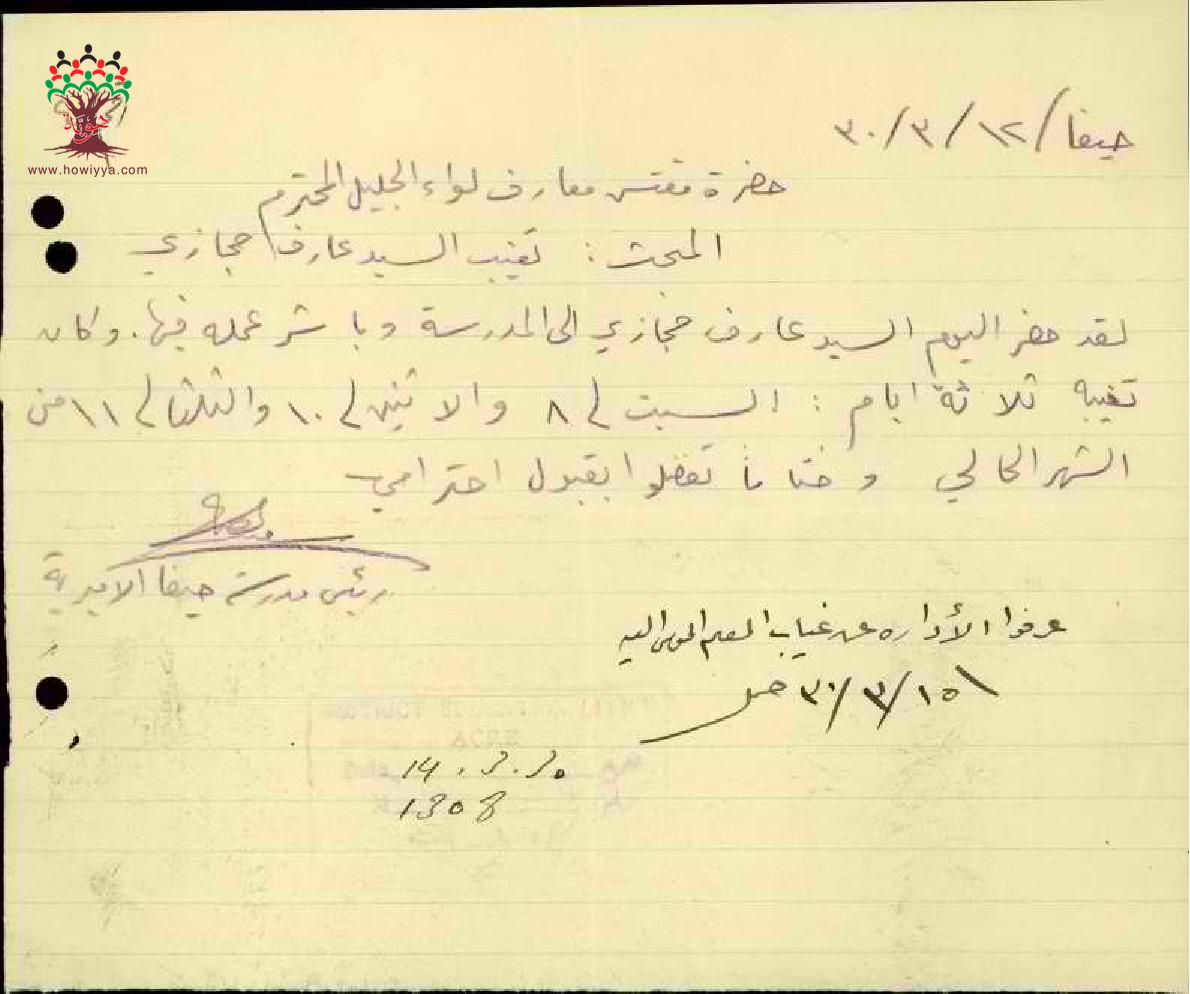 هوية
www.howiyya.com
حيفا / ١٢ / ٣ / ٣٠
حضرة مفتش معارف لواء الجليل المحترم
المبحث : تغيب السيد عارف حجازي
لقد حضر اليوم السيد عارف حجازي الى المدرسة وباشر عمله فيها. وكان
تغيبه ثلاثة ايام : السبت في ٨ والاثنين في ١٠ والثلثا في ١١ من
الشهر الحالي وختاما تفضلوا بقبول احترامي
رئيس مدرسة حيفا الاميرية
عرفوا الأداره عن غياب المعلم المومى اليه
١٥ / ٣ / ٣٠
DISTRICT EDUCATION
ACRE
14 . 3 . 30
1308